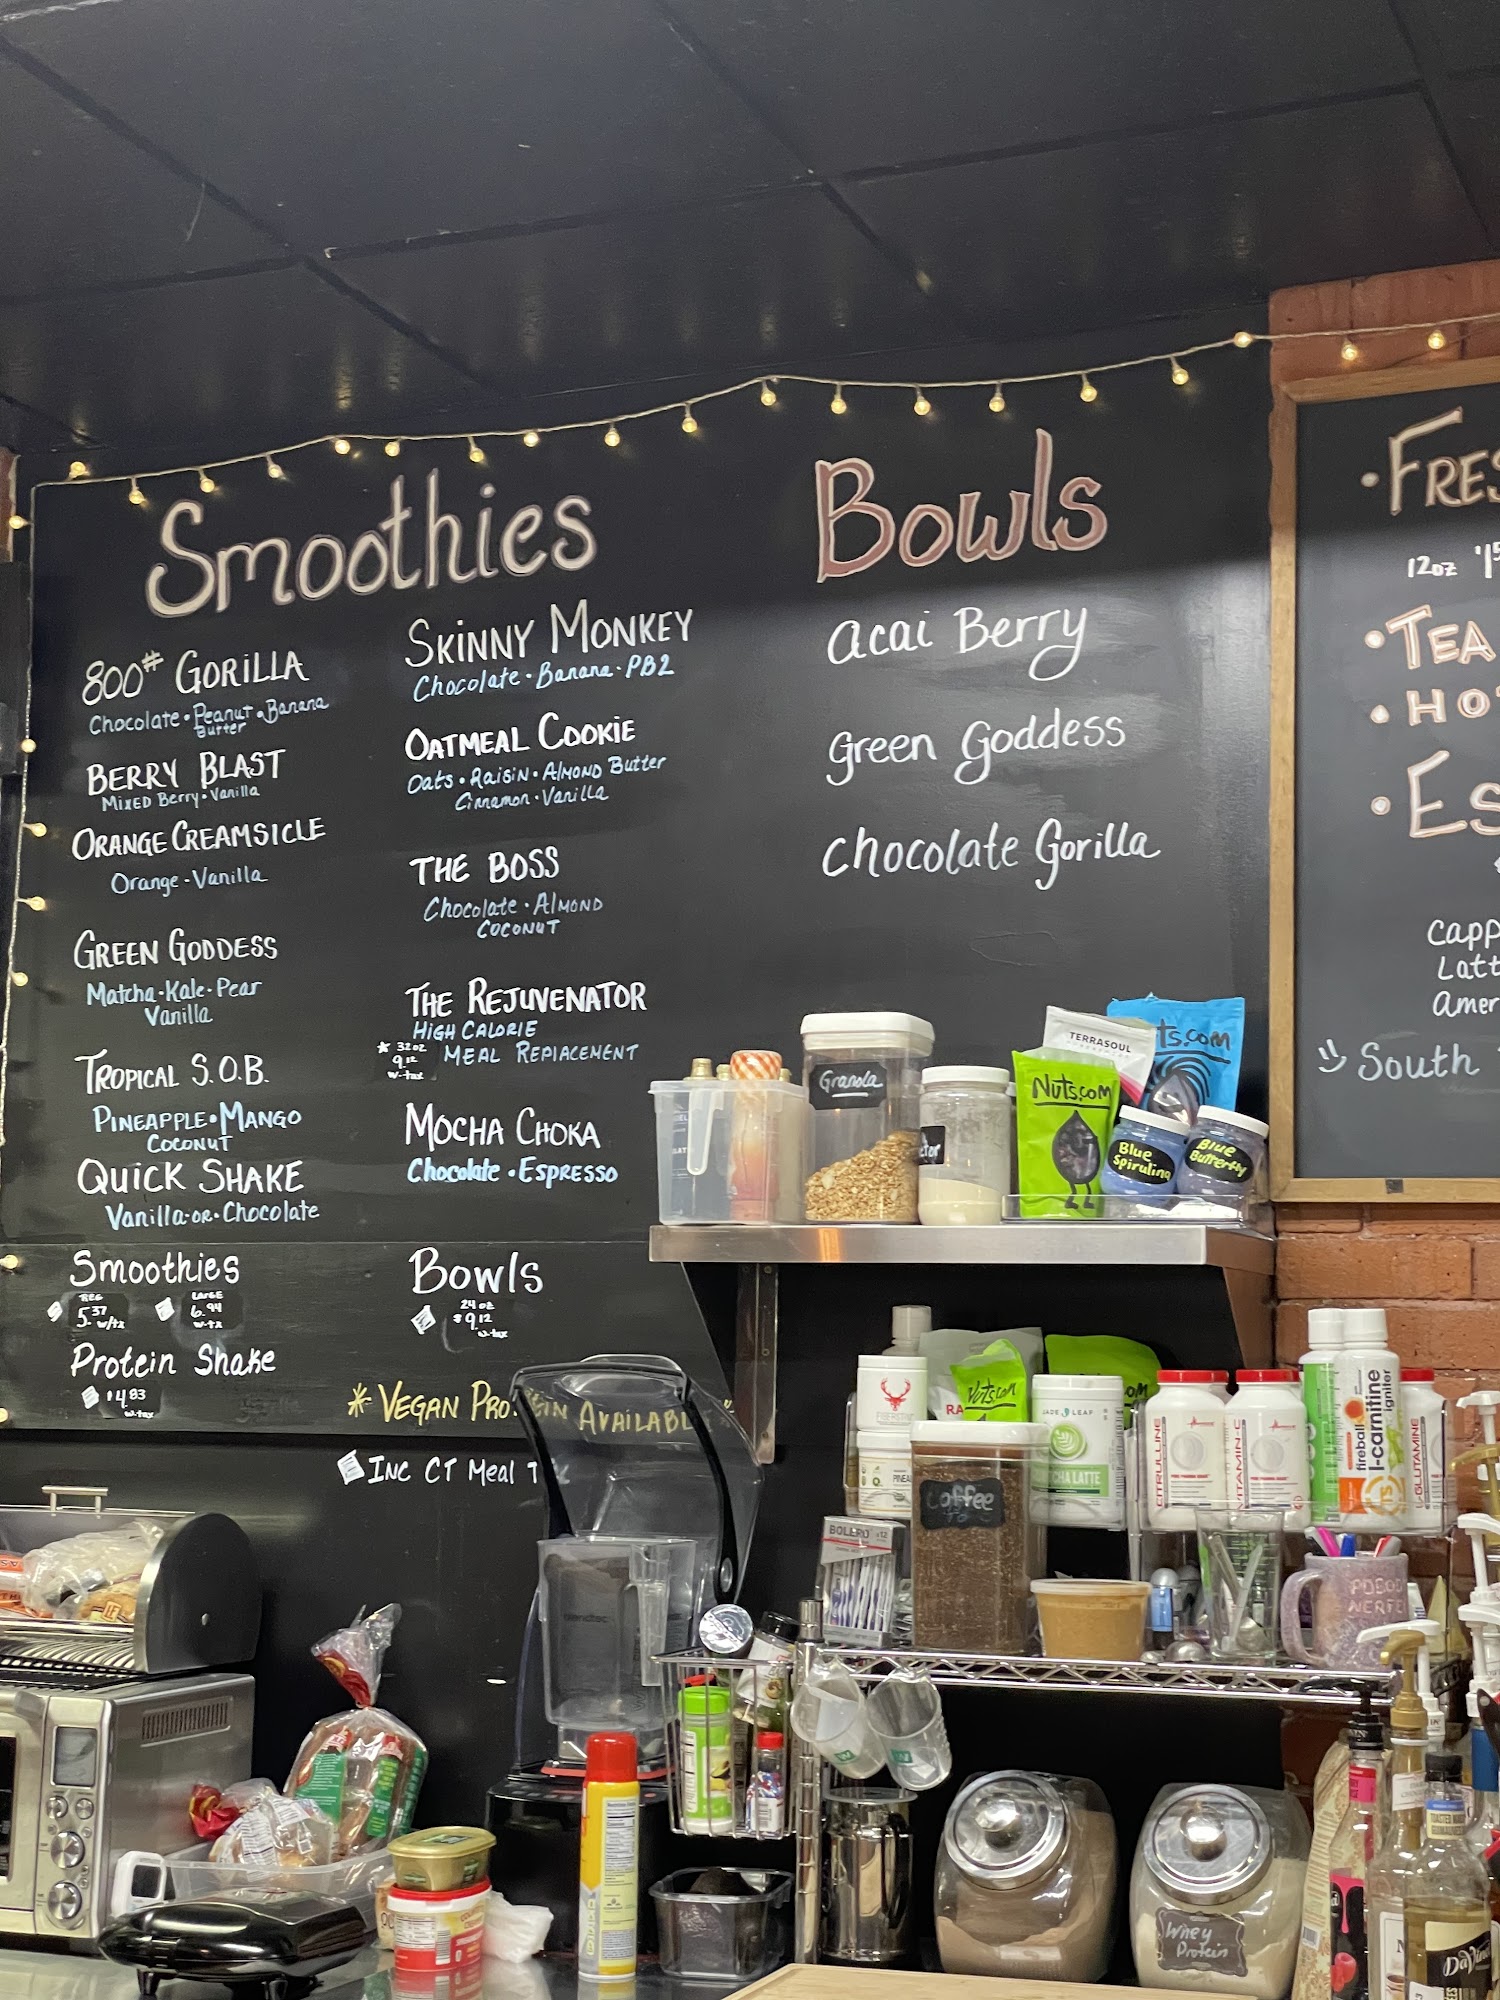 Smoothies
800# GORILLA
Chocolate • Peanut • Banana
Butter
BERRY BLAST
Mixed Berry • Vanilla
ORANGE CREAMSICLE
Orange - Vanilla
GREEN GODDESS
Matcha • Kale • Pear
Vanilla
TROPICAL S.O.B.
PINEAPPLE • MANGO
COCONUT
QUICK SHAKE
Vanilla • or • Chocolate
SKINNY MONKEY
Chocolate • Banana • PB2
OATMEAL COOKIE
Oats • Raisin • Almond Butter
Cinnamon • Vanilla
THE BOSS
Chocolate • Almond
COCONUT
THE REJUVENATOR
HIGH CALORIE
MEAL REPLACEMENT
* 32oz
9.12
w-tax
MOCHA CHOKA
Chocolate • ESPRESSO
Bowls
Acai Berry
Green Goddess
Chocolate Gorilla
Smoothies
REG
5.37
w/tx
LARGE
6.94
w-tx
Protein Shake
$4.83
w-tax
Bowls
24 oz
$9.12
w-tax
* VEGAN PROTEIN AVAILABL
INC CT Meal T
• FRES
12oz
• TEA
• HO
• ES
Capp
Latt
Amer
South
Granola
TERRASOUL
Nuts.com
ts.com
Blue
Spirulina
Blue
Butterfly
Nuts.com
JADE LEAF
CHA LATTE
Coffee
BOLERO
CITRULLINE
VITAMIN-C
fireball
l-carnitine
igniter
L-GLUTAMINE
blendtec
Whey
Protein
DaVinci